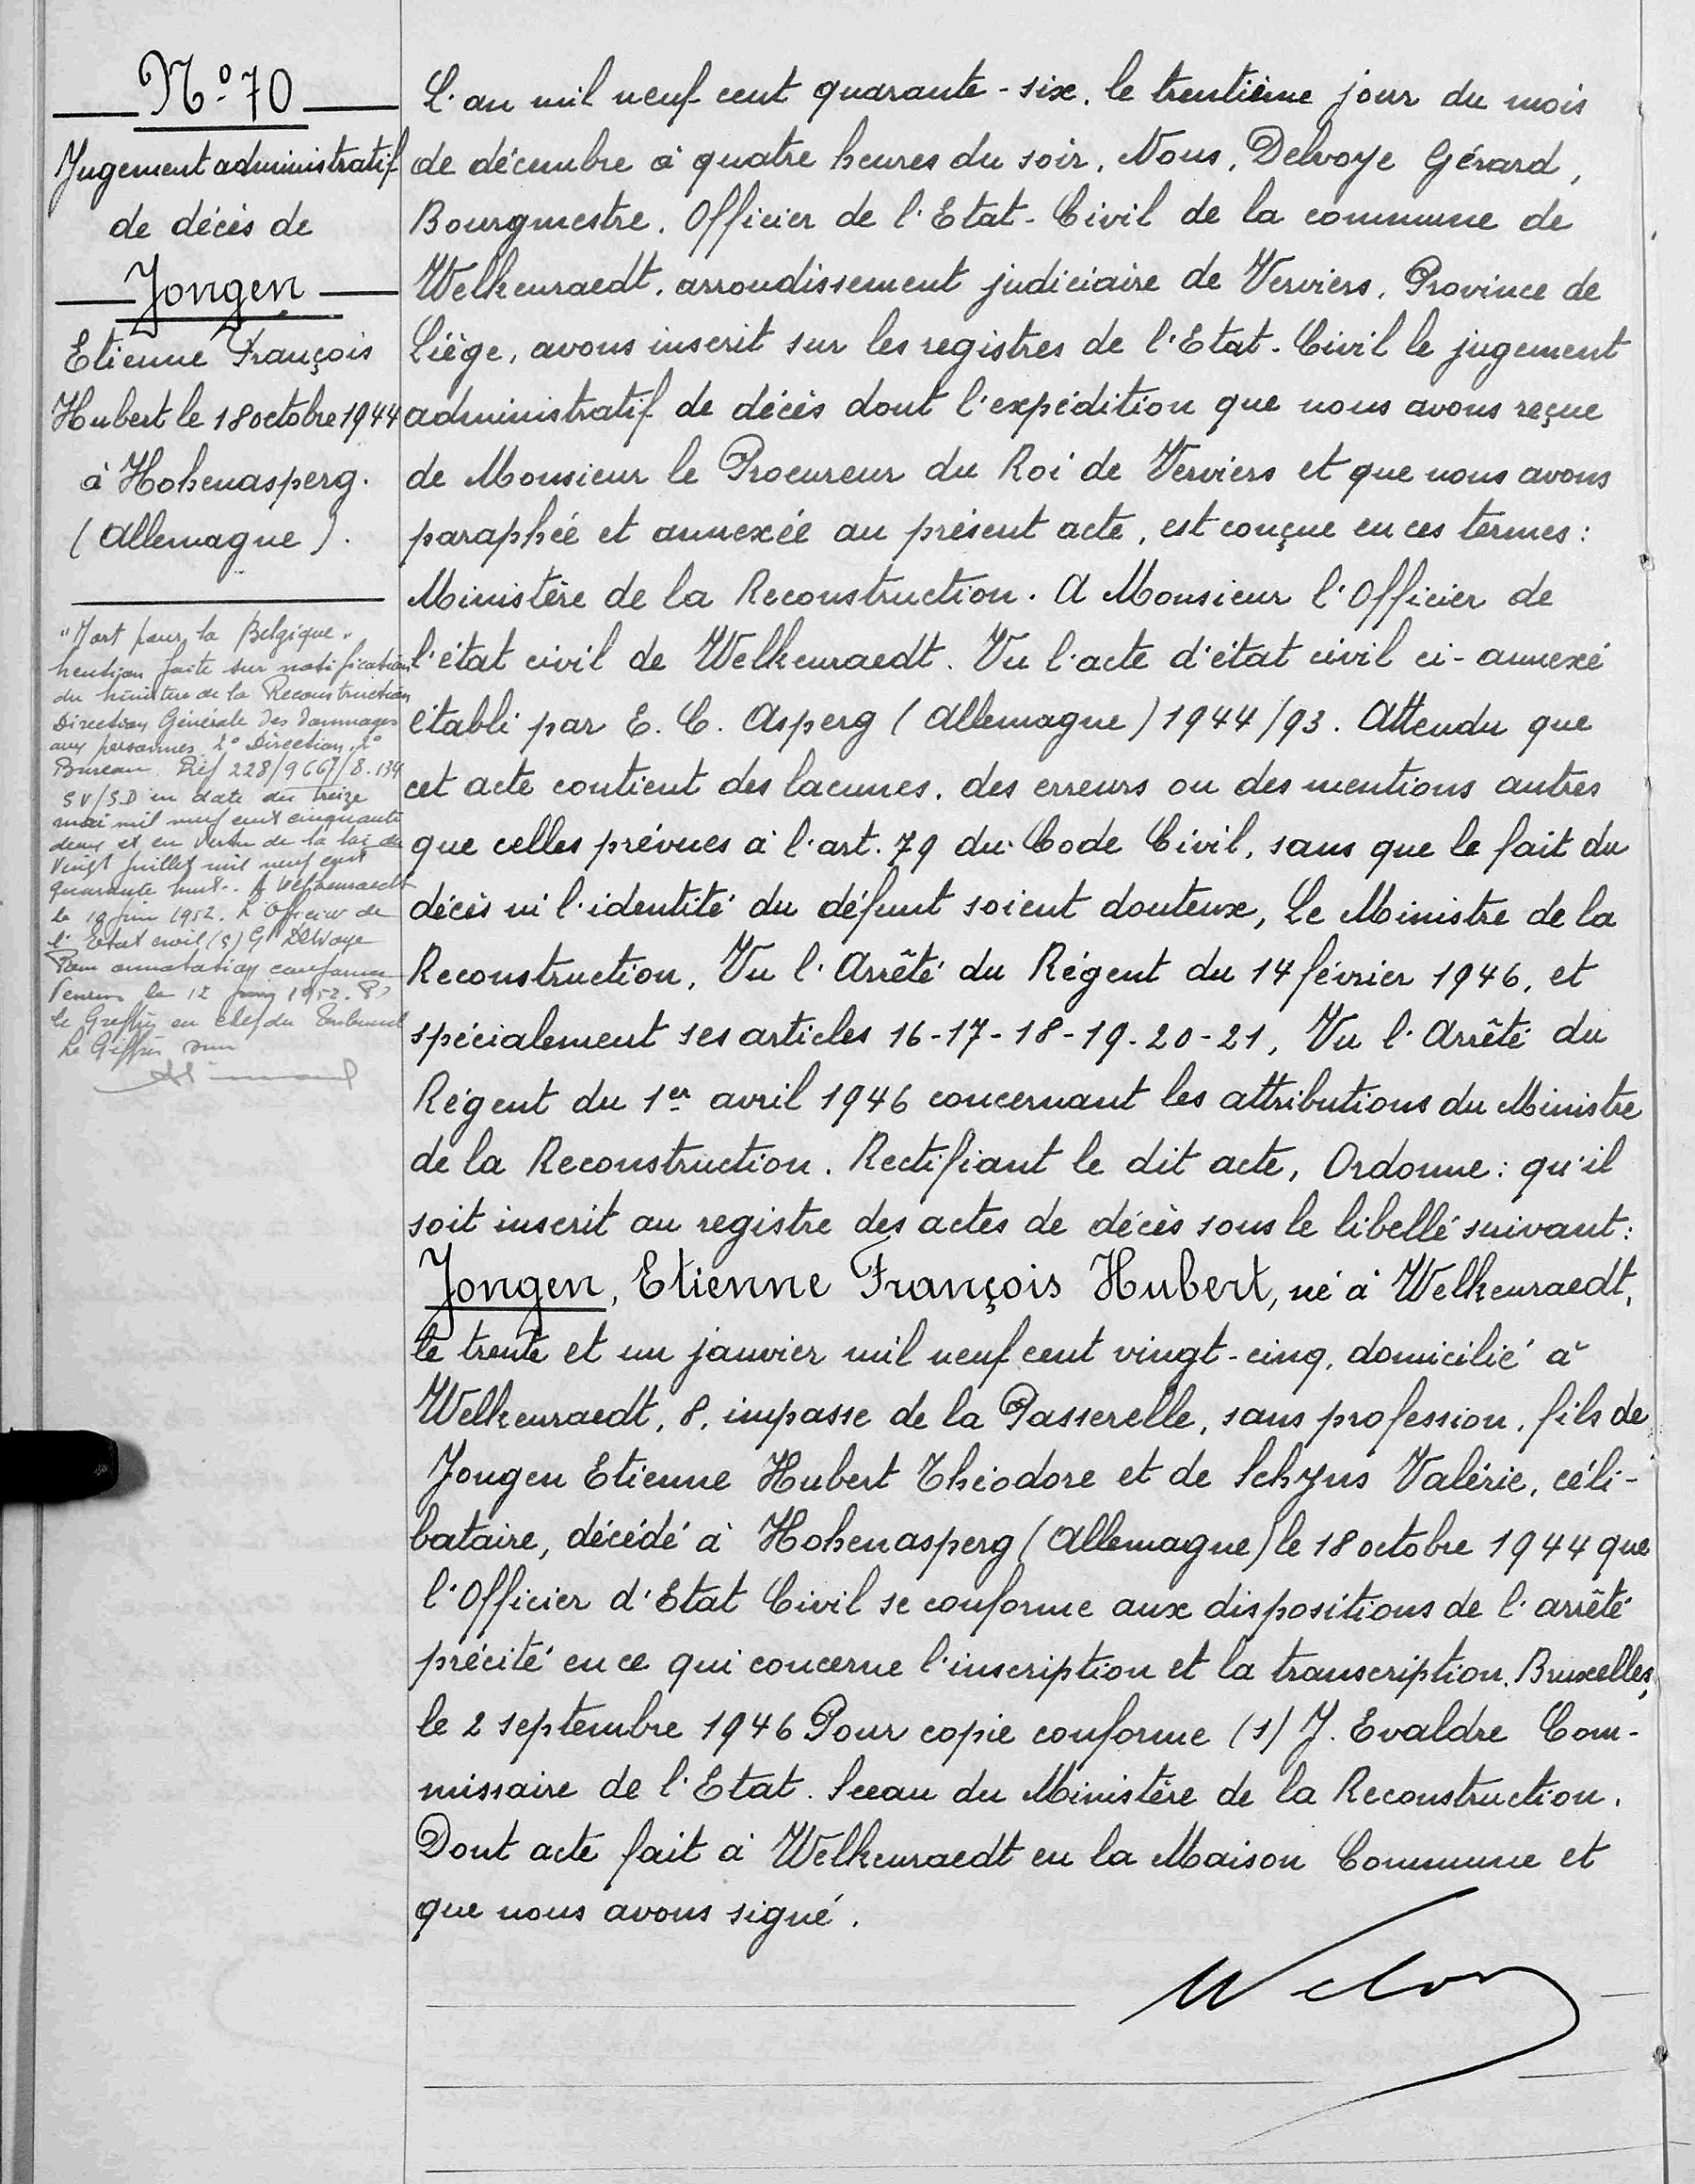 N° 70
Jugement administratif
de décès de
Jongen
Etienne François
Hubert le 18 octobre 1944
à Hohenasperg.
(Allemagne).
"Mort pour la Belgique"
Mention faite sur notification
du Ministère de la Reconstruction
Direction Générale des dommages
aux personnes 2° Direction, 2°
Bureau Réf 228/9667/8.134
SV/S.D en date du treize
mai mil neuf cent cinquante
deux et en vertu de la loi du
vingt juillet mil neuf cent
quarante huit. A Welkenraedt
le 10 juin 1952. L'Officier de
l'Etat civil (s) G Delvoye
Pour annotation conforme
Verviers le 12 juin 1952.
le Greffier en chef du Tribunal
Le Greffier
L'an mil neuf cent quarante-six, le trentième jour du mois
de décembre à quatre heures du soir, Nous, Delvoye Gérard,
Bourgmestre, Officier de l'Etat-Civil de la commune de
Welkenraedt, arrondissement judiciaire de Verviers, Province de
Liège, avons inscrit sur les registres de l'Etat-Civil le jugement
administratif de décès dont l'expédition que nous avons reçue
de Monsieur le Procureur du Roi de Verviers et que nous avons
paraphée et annexée au présent acte, est conçue en ces termes:
Ministère de la Reconstruction. A Monsieur l'Officier de
l'état civil de Welkenraedt. Vu l'acte d'état civil ci-annexé
établi par E. C. Asperg (Allemagne) 1944/93. Attendu que
cet acte contient des lacunes, des erreurs ou des mentions autres
que celles prévues à l'art. 79 du Code Civil, sans que le fait du
décès ni l'identité du défunt soient douteux, Le Ministre de la
Reconstruction, Vu l'Arrêté du Régent du 14 février 1946, et
spécialement ses articles 16-17-18-19-20-21, Vu l'Arrêté du
Régent du 1er avril 1946 concernant les attributions du Ministre
de la Reconstruction. Rectifiant le dit acte, Ordonne: qu'il
soit inscrit au registre des actes de décès sous le libellé suivant:
Jongen, Etienne François Hubert, né à Welkenraedt,
le trente et un janvier mil neuf cent vingt-cinq, domicilié à
Welkenraedt, 8, impasse de la Passerelle, sans profession, fils de
Jongen Etienne Hubert Théodore et de Schyns Valérie, céli-
bataire, décédé à Hohenasperg (Allemagne) le 18 octobre 1944 que
l'Officier d'Etat Civil se conforme aux dispositions de l'arrêté
précité en ce qui concerne l'inscription et la transcription. Bruxelles,
le 2 septembre 1946 Pour copie conforme (s) J. Evaldre Com-
missaire de l'Etat. Sceau du Ministère de la Reconstruction.
Dont acte fait à Welkenraedt en la Maison Commune et
que nous avons signé.